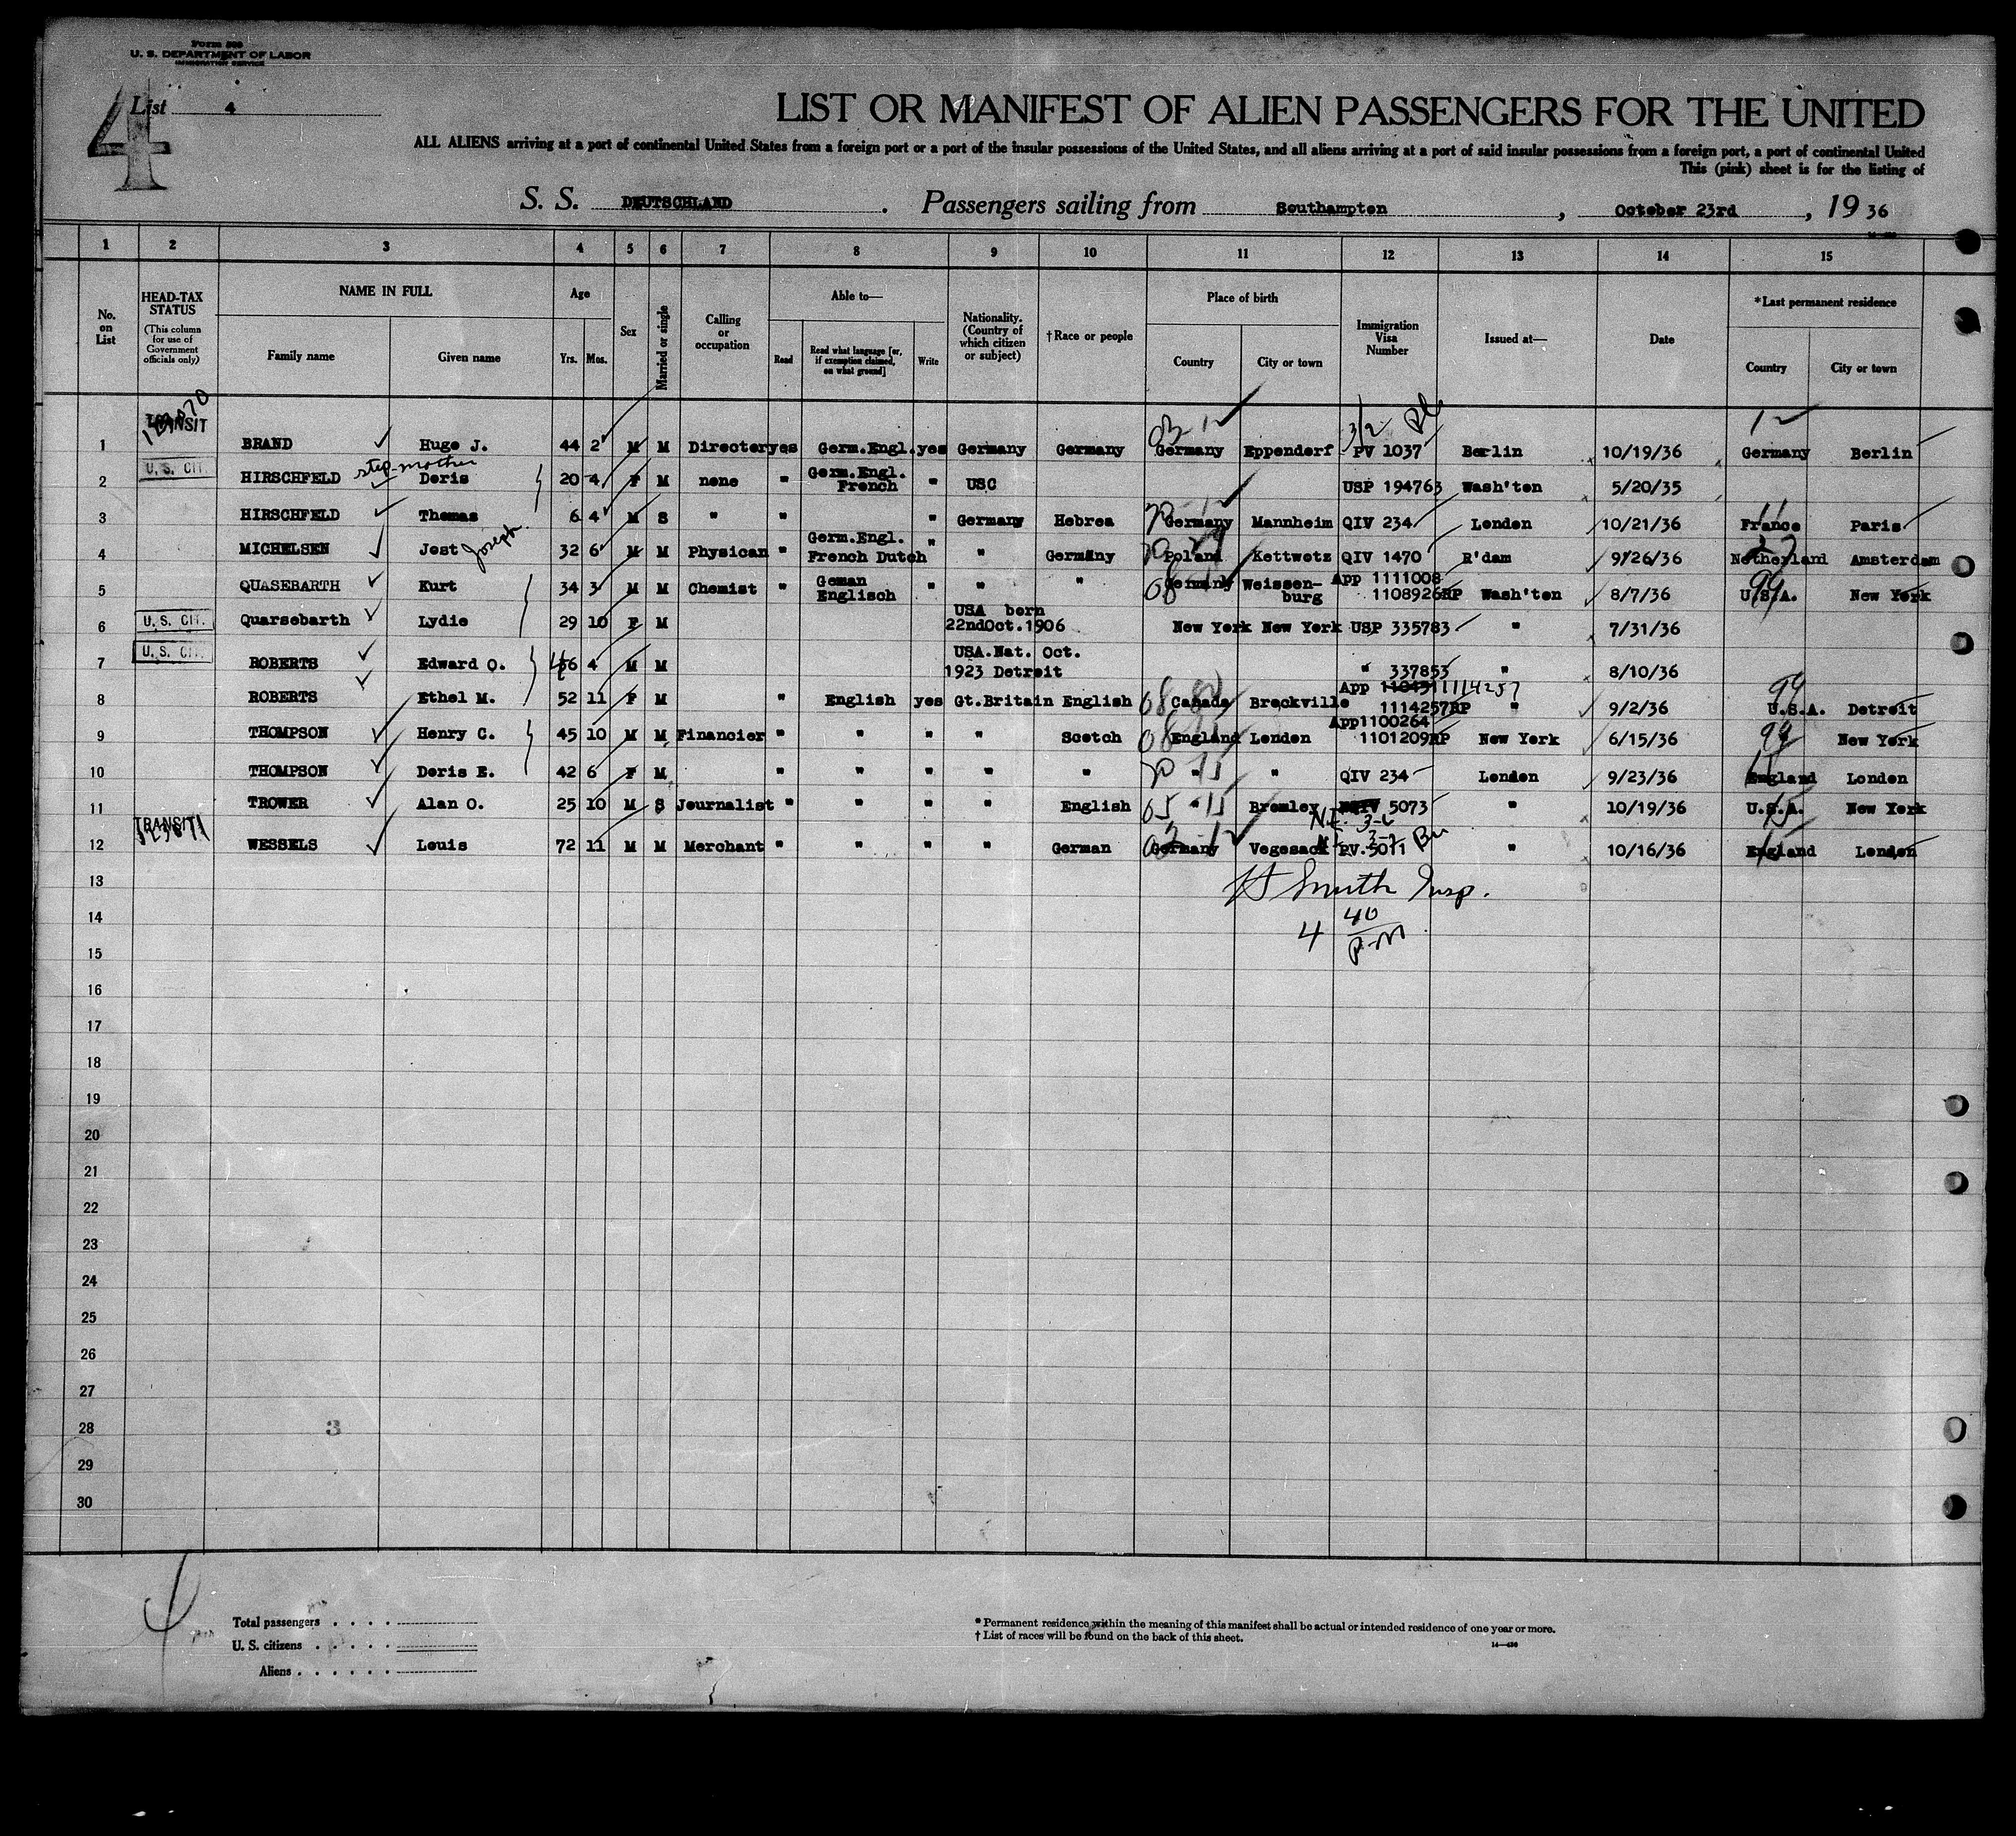 Form 500
U. S. DEPARTMENT OF LABOR
IMMIGRATION SERVICE
4
List 4
LIST OR MANIFEST OF ALIEN PASSENGERS FOR THE UNITED
ALL ALIENS arriving at a port of continental United States from a foreign port or a port of the insular possessions of the United States, and all aliens arriving at a port of said insular possessions from a foreign port, a port of continental United
This (pink) sheet is for the listing of
S. S. DEUTSCHLAND. Passengers sailing from Southampton, October 23rd, 19 36
1 2 3 4 5 6 7 8 9 10 11 12 13 14 15
No. on List
HEAD-TAX STATUS (This column for use of Government officials only)
NAME IN FULL
Family name
Given name
Age
Yrs. Mos.
Sex
Married or single
Calling or occupation
Able to—
Read
Read what language [or, if exemption claimed, on what ground]
Write
Nationality. (Country of which citizen or subject)
†Race or people
Place of birth
Country
City or town
Immigration Visa Number
Issued at—
Date
*Last permanent residence
Country
City or town
1 TRANSIT BRAND Hugo J. 44 2 M M Director yes Germ.Engl. yes Germany Germany Germany Eppendorf PV 1037 Berlin 10/19/36 Germany Berlin
step-mother
2 U. S. CIT. HIRSCHFELD Doris 20 4 F M none " Germ.Engl. French " USC USP 194763 Wash'ton 5/20/35
3 HIRSCHFELD Thomas 6 4 M S " " " Germany Hebrea Germany Mannheim QIV 234 London 10/21/36 France Paris
4 MICHELSEN Jost Joseph 32 6 M M Physican " Germ.Engl. French Dutch " " Germany Poland Kettwetz QIV 1470 R'dam 9/26/36 Netherland Amsterdam
5 QUASEBARTH Kurt 34 3 M M Chemist " Geman Englisch " " " Germany Weissen-burg App 1111008 1108926RP Wash'ton 8/7/36 U.S.A. New York
6 U. S. CIT. Quarsebarth Lydie 29 10 F M USA born 22ndOct.1906 New York New York USP 335783 " 7/31/36
7 U. S. CIT. ROBERTS Edward O. 46 4 M M USA.Nat. Oct. 1923 Detroit " 337853 " 8/10/36
8 ROBERTS Ethel M. 52 11 F M " English yes Gt.Britain English Canada Brockville App 1114257 1114257RP " 9/2/36 U.S.A. Detroit
9 THOMPSON Henry C. 45 10 M M Financier " " " " Scotch England London App1100264 1101209RP New York 6/15/36 New York
10 THOMPSON Doris E. 42 6 F M " " " " " " " QIV 234 London 9/23/36 England London
11 TROWER Alan O. 25 10 M S Journalist " " " " English " Bromley 5073 " 10/19/36 U.S.A. New York
12 TRANSIT WESSELS Louis 72 11 M M Merchant " " " " German Germany Vegesack PV.5071 " 10/16/36 England London
13 H Smith Insp.
14 4 40
15 P.M
16
17
18
19
20
21
22
23
24
25
26
27
28 3
29
30
Total passengers
U. S. citizens
Aliens
* Permanent residence within the meaning of this manifest shall be actual or intended residence of one year or more.
† List of races will be found on the back of this sheet.
14—430